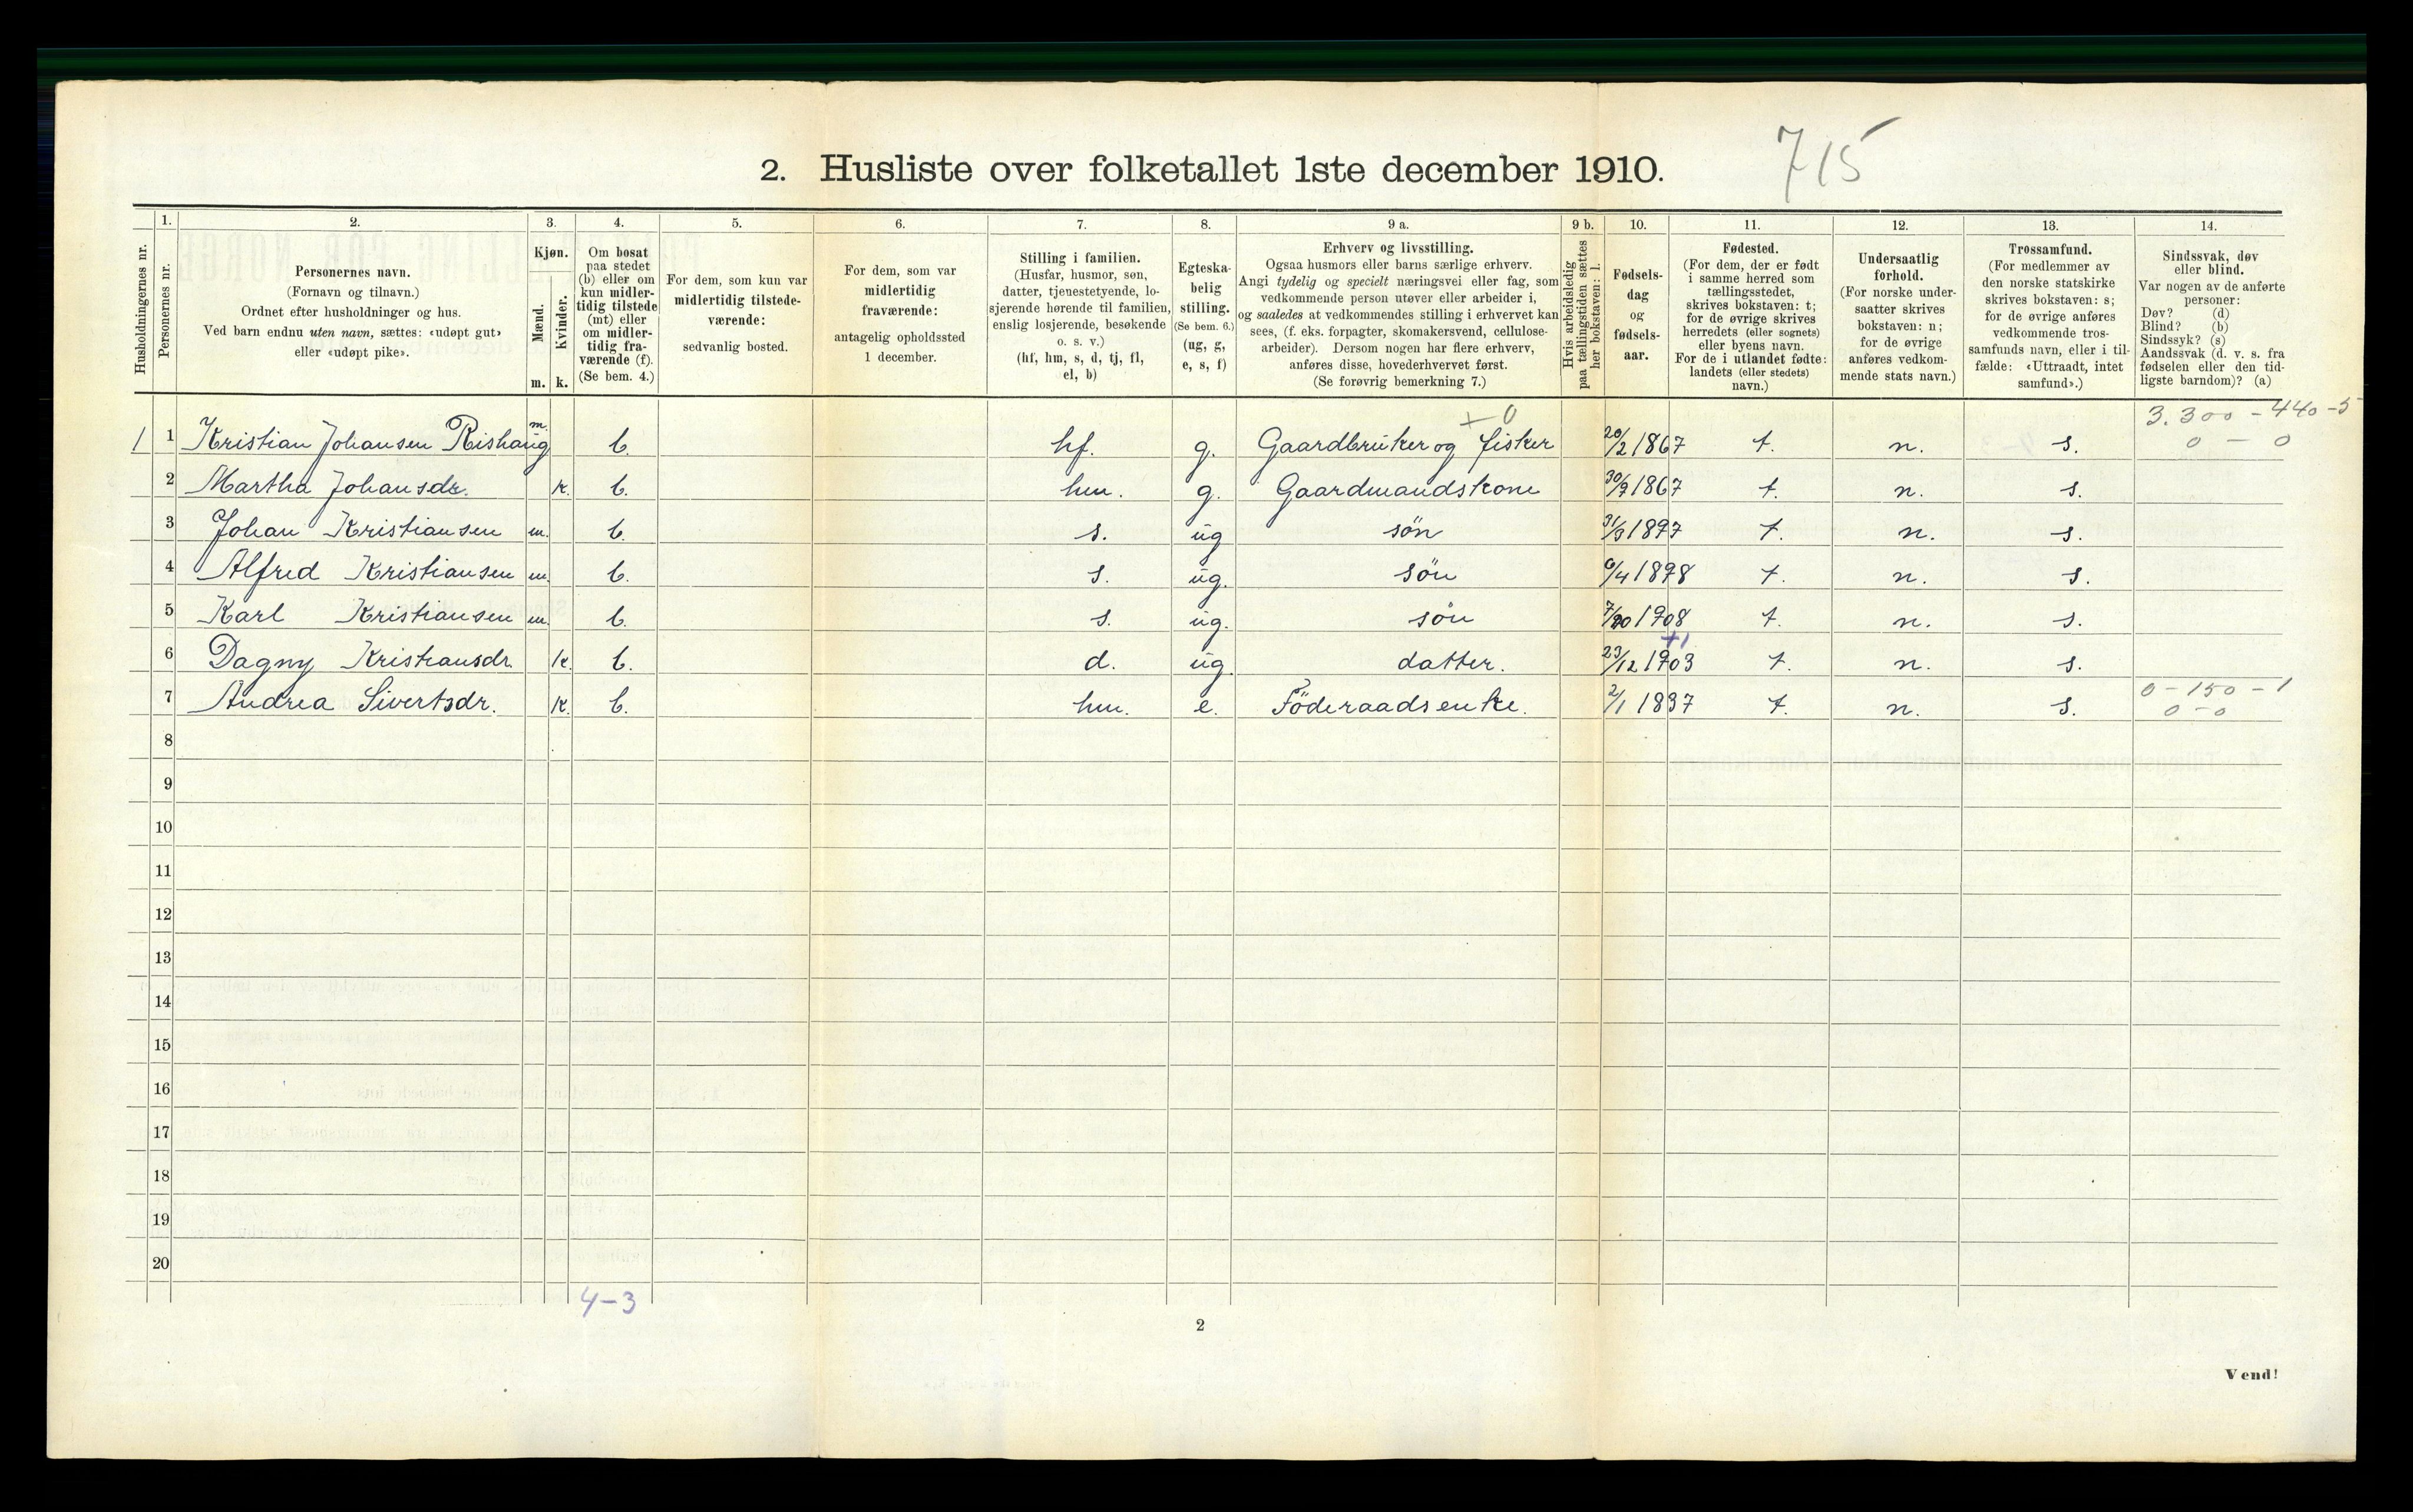 2. Husliste over folketallet 1ste december 1910.
715
Husholdningernes nr.
1.
Personernes nr.
2.
Personernes navn.
(Fornavn og tilnavn.)
Ordnet efter husholdninger og hus.
Ved barn endnu uten navn, sættes: «udøpt gut»
eller «udøpt pike».
3.
Kjøn.
Mænd.
Kvinder.
m. k.
4.
Om bosat
paa stedet
(b) eller om
kun midler-
tidig tilstede
(mt) eller
om midler-
tidig fra-
værende (f).
(Se bem. 4.)
5.
For dem, som kun var
midlertidig tilstede-
værende:
sedvanlig bosted.
6.
For dem, som var
midlertidig
fraværende:
antagelig opholdssted
1 december.
7.
Stilling i familien.
(Husfar, husmor, søn,
datter, tjenestetyende, lo-
sjerende hørende til familien,
enslig losjerende, besøkende
o. s. v.)
(hf, hm, s, d, tj, fl,
el, b)
8.
Egteska-
belig
stilling.
(Se bem. 6.)
(ug, g,
e, s, f)
9 a.
Erhverv og livsstilling.
Ogsaa husmors eller barns særlige erhverv.
Angi tydelig og specielt næringsvei eller fag, som
vedkommende person utøver eller arbeider i,
og saaledes at vedkommendes stilling i erhvervet kan
sees, (f. eks. forpagter, skomakersvend, cellulose-
arbeider). Dersom nogen har flere erhverv,
anføres disse, hovederhvervet først.
(Se forøvrig bemerkning 7.)
9 b.
Hvis arbeidsledig
paa tællingstiden sættes
her bokstaven: l.
10.
Fødsels-
dag
og
fødsels-
aar.
11.
Fødested.
(For dem, der er født
i samme herred som
tællingsstedet,
skrives bokstaven: t;
for de øvrige skrives
herredets (eller sognets)
eller byens navn.
For de i utlandet fødte:
landets (eller stedets)
navn.)
12.
Undersaatlig
forhold.
(For norske under-
saatter skrives
bokstaven: n;
for de øvrige
anføres vedkom-
mende stats navn.)
13.
Trossamfund.
(For medlemmer av
den norske statskirke
skrives bokstaven: s;
for de øvrige anføres
vedkommende tros-
samfunds navn, eller i til-
fælde: «Uttraadt, intet
samfund».)
14.
Sindssvak, døv
eller blind.
Var nogen av de anførte
personer:
Døv? (d)
Blind? (b)
Sindssyk? (s)
Aandssvak (d. v. s. fra
fødselen eller den tid-
ligste barndom)? (a)
+ 0 3.300 - 440 - 5
1 1 Kristian Johansen Rishaug m. b. hf. g. Gaardbruker og fisker 20/2 1867 t. n. s. 0 - 0
2 Martha Johansdr. k. b. hm. g. Gaardmandskone 30/7 1867 t. n. s.
3 Johan Kristiansen m. b. s. ug søn 31/3 1897 t. n. s.
4 Alfred Kristiansen m. b. s. ug. søn 6/4 1898 t. n. s.
5 Karl Kristiansen m. b. s. ug. søn 1908 t. n. s.
+1
6 Dagny Kristiansdr. k. b. d. ug. datter. 23/12 1903 t. n. s.
0 - 150 - 1
7 Andrea Sivertsdr. k. b. hm. e. Föderaadsenke. 2/1 1837 t. n. s. 0 - 0
8
9
10
11
12
13
14
15
16
17
18
19
20
4-3
2
Vend!